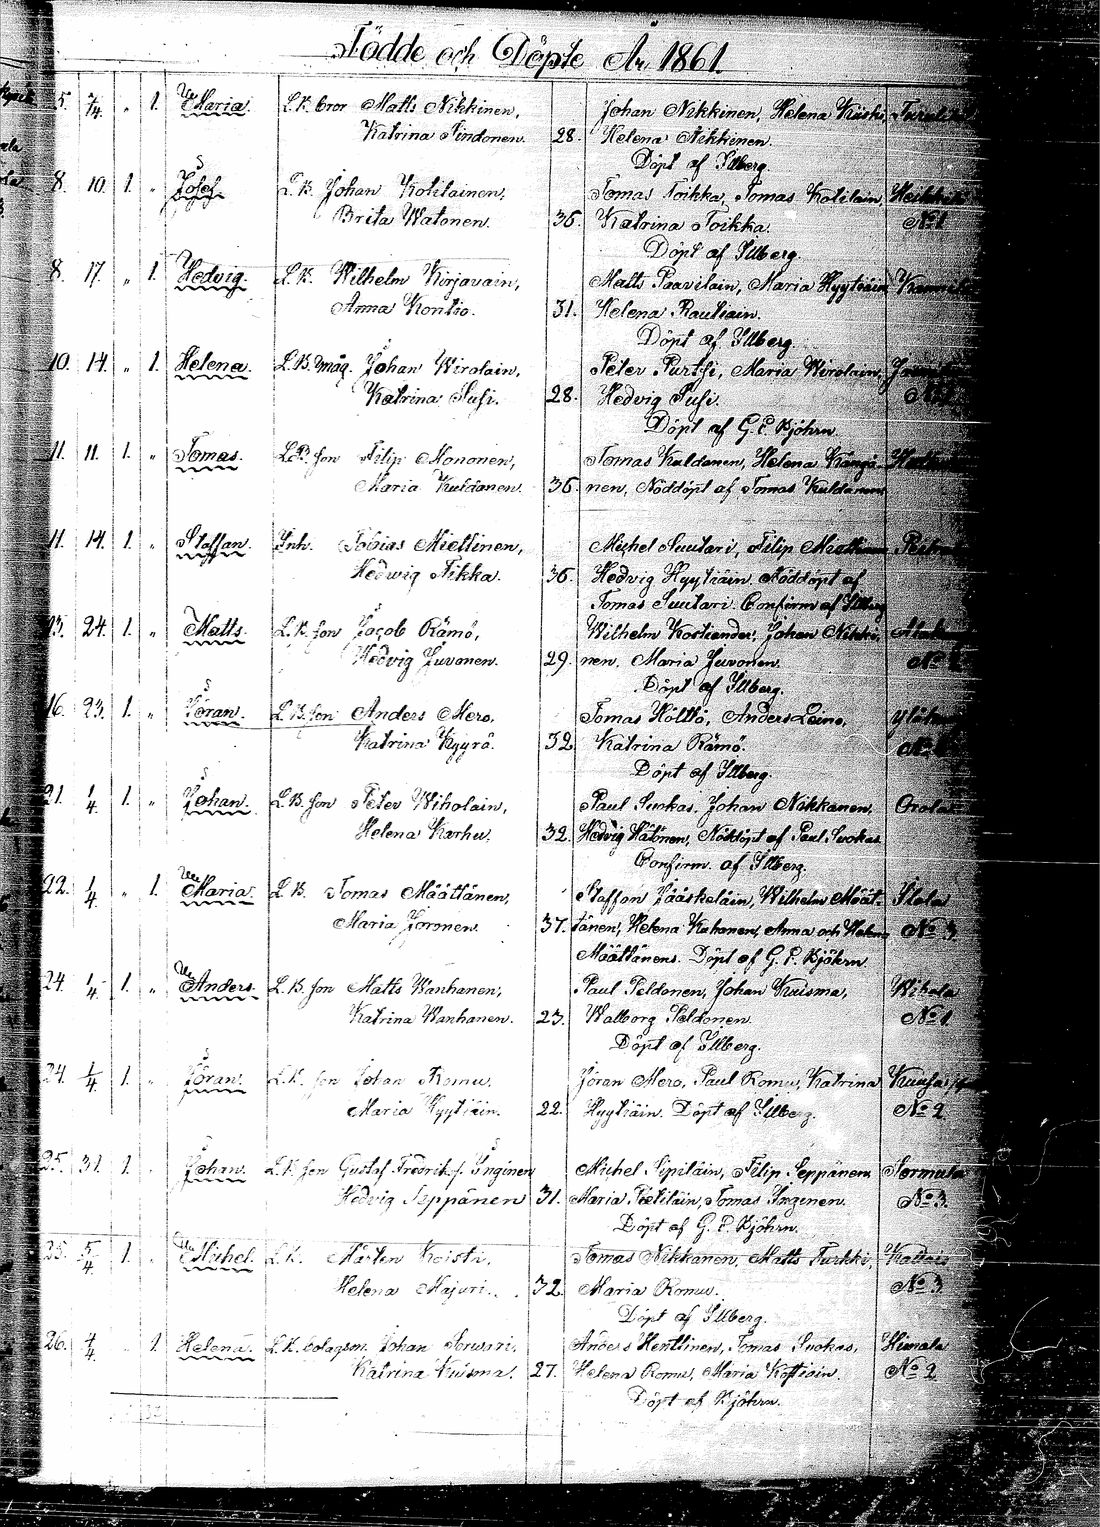 Födde och Döpte År 1861.
5. 7/4. " 1. Maria. L.B. bror Matts Nikkinen, Johan Nikkinen, Helena Kiiski,
Katrina Tindonen. 28. Helena Nikkinen.
Döpt af Illberg.
8. 10. 1. " Josef. L.B. Johan Kotilainen, Tomas Toikka, Tomas Kotilain,
Brita Watonen. 36. Katrina Toikka. No 1
Döpt af Illberg.
8. 17. " 1. Hedvig. L.B. Wilhelm Kirjavain, Matts Paavilain, Maria Hyytiäin
Anna Kontio. 31. Helena Rautiain.
Döpt af Illberg.
10. 14. " 1. Helena. L.B. måg. Johan Wirolain, Peter Purtsi, Maria Wirolain,
Katrina Susi. 28. Hedvig Susi.
Döpt af G. E. Bjöhrn.
11. 11. 1. " Tomas. L.B. son Filip Mononen, Tomas Kuldanen, Helena Kängä-
Maria Kuldanen. 36. nen, Nöddöpt af Tomas Kuldanen
11. 14. 1. " Staffan. Inh. Tobias Miettinen, Michel Suutari, Filip Miettinen
Hedwig Tikka. 36. Hedvig Hyytiäin. Nöddöpt af
Tomas Suutari. Confirm af Illberg
13. 24. 1. " Matts. L.B. son Jacob Rämö, Wilhelm Kostiander, Johan Nikki-
Hedvig Juvonen. 29. nen, Maria Juvonen.
Döpt af Illberg.
16. 23. 1. " Jöran. L.B. son Anders Mero, Tomas Hölttö, Anders Leino,
Katrina Kyyrö. 32. Katrina Rämö.
Döpt af Illberg.
21. 1/4. 1. " Johan. L.B. son Peter Wiholain, Paul Suokas, Johan Nikkanen, Orola
Helena Karhu. 32. Hedvig Hätönen, Nöddöpt af Paul Suokas
Confirm. af Illberg.
22. 1/4. " 1. Maria. L.B. Tomas Määttänen, Staffan Jääskeläin, Wilhelm Määt-
Maria Joronen. 37. tänen, Helena Kahanen, Anna och Helena No 3
Määttänens. Döpt af G. E. Bjöhrn.
24. 1/4. 1. " Anders. L.B. son Matts Wanhanen, Paul Peldonen, Johan Kuisma,
Katrina Wanhanen. 23. Walborg Peldonen. No 1.
Döpt af Illberg.
24. 1/4. 1. " Jöran. L.B. son Johan Romu, Jöran Mero, Paul Romu, Katrina
Maria Hyytiäin. 22. Hyytiäin. Döpt af Illberg. No 2
25. 31. 1. " Johan. L.B. son Gustaf Fredrik s. Inginen Michel Sipiläin, Filip Seppänen Sormula
Hedvig Seppänen 31. Maria Pietiläin, Tomas Inginen. No 3.
Döpt af G. E. Bjöhrn.
25. 5/4. 1. " Michel. L.B. Mårten Koisti, Tomas Nikkanen, Matts Turkki,
Helena Majuri. 32. Maria Romu. No 3
Döpt af Illberg.
26. 4/4. " 1. Helena. L.B. bolagsm. Johan Torvari, Anders Henttinen, Tomas Suokas, Himala
Katrina Kuisma. 27. Helena Romu, Maria Kostiain. No 2
Döpt af Bjöhrn.